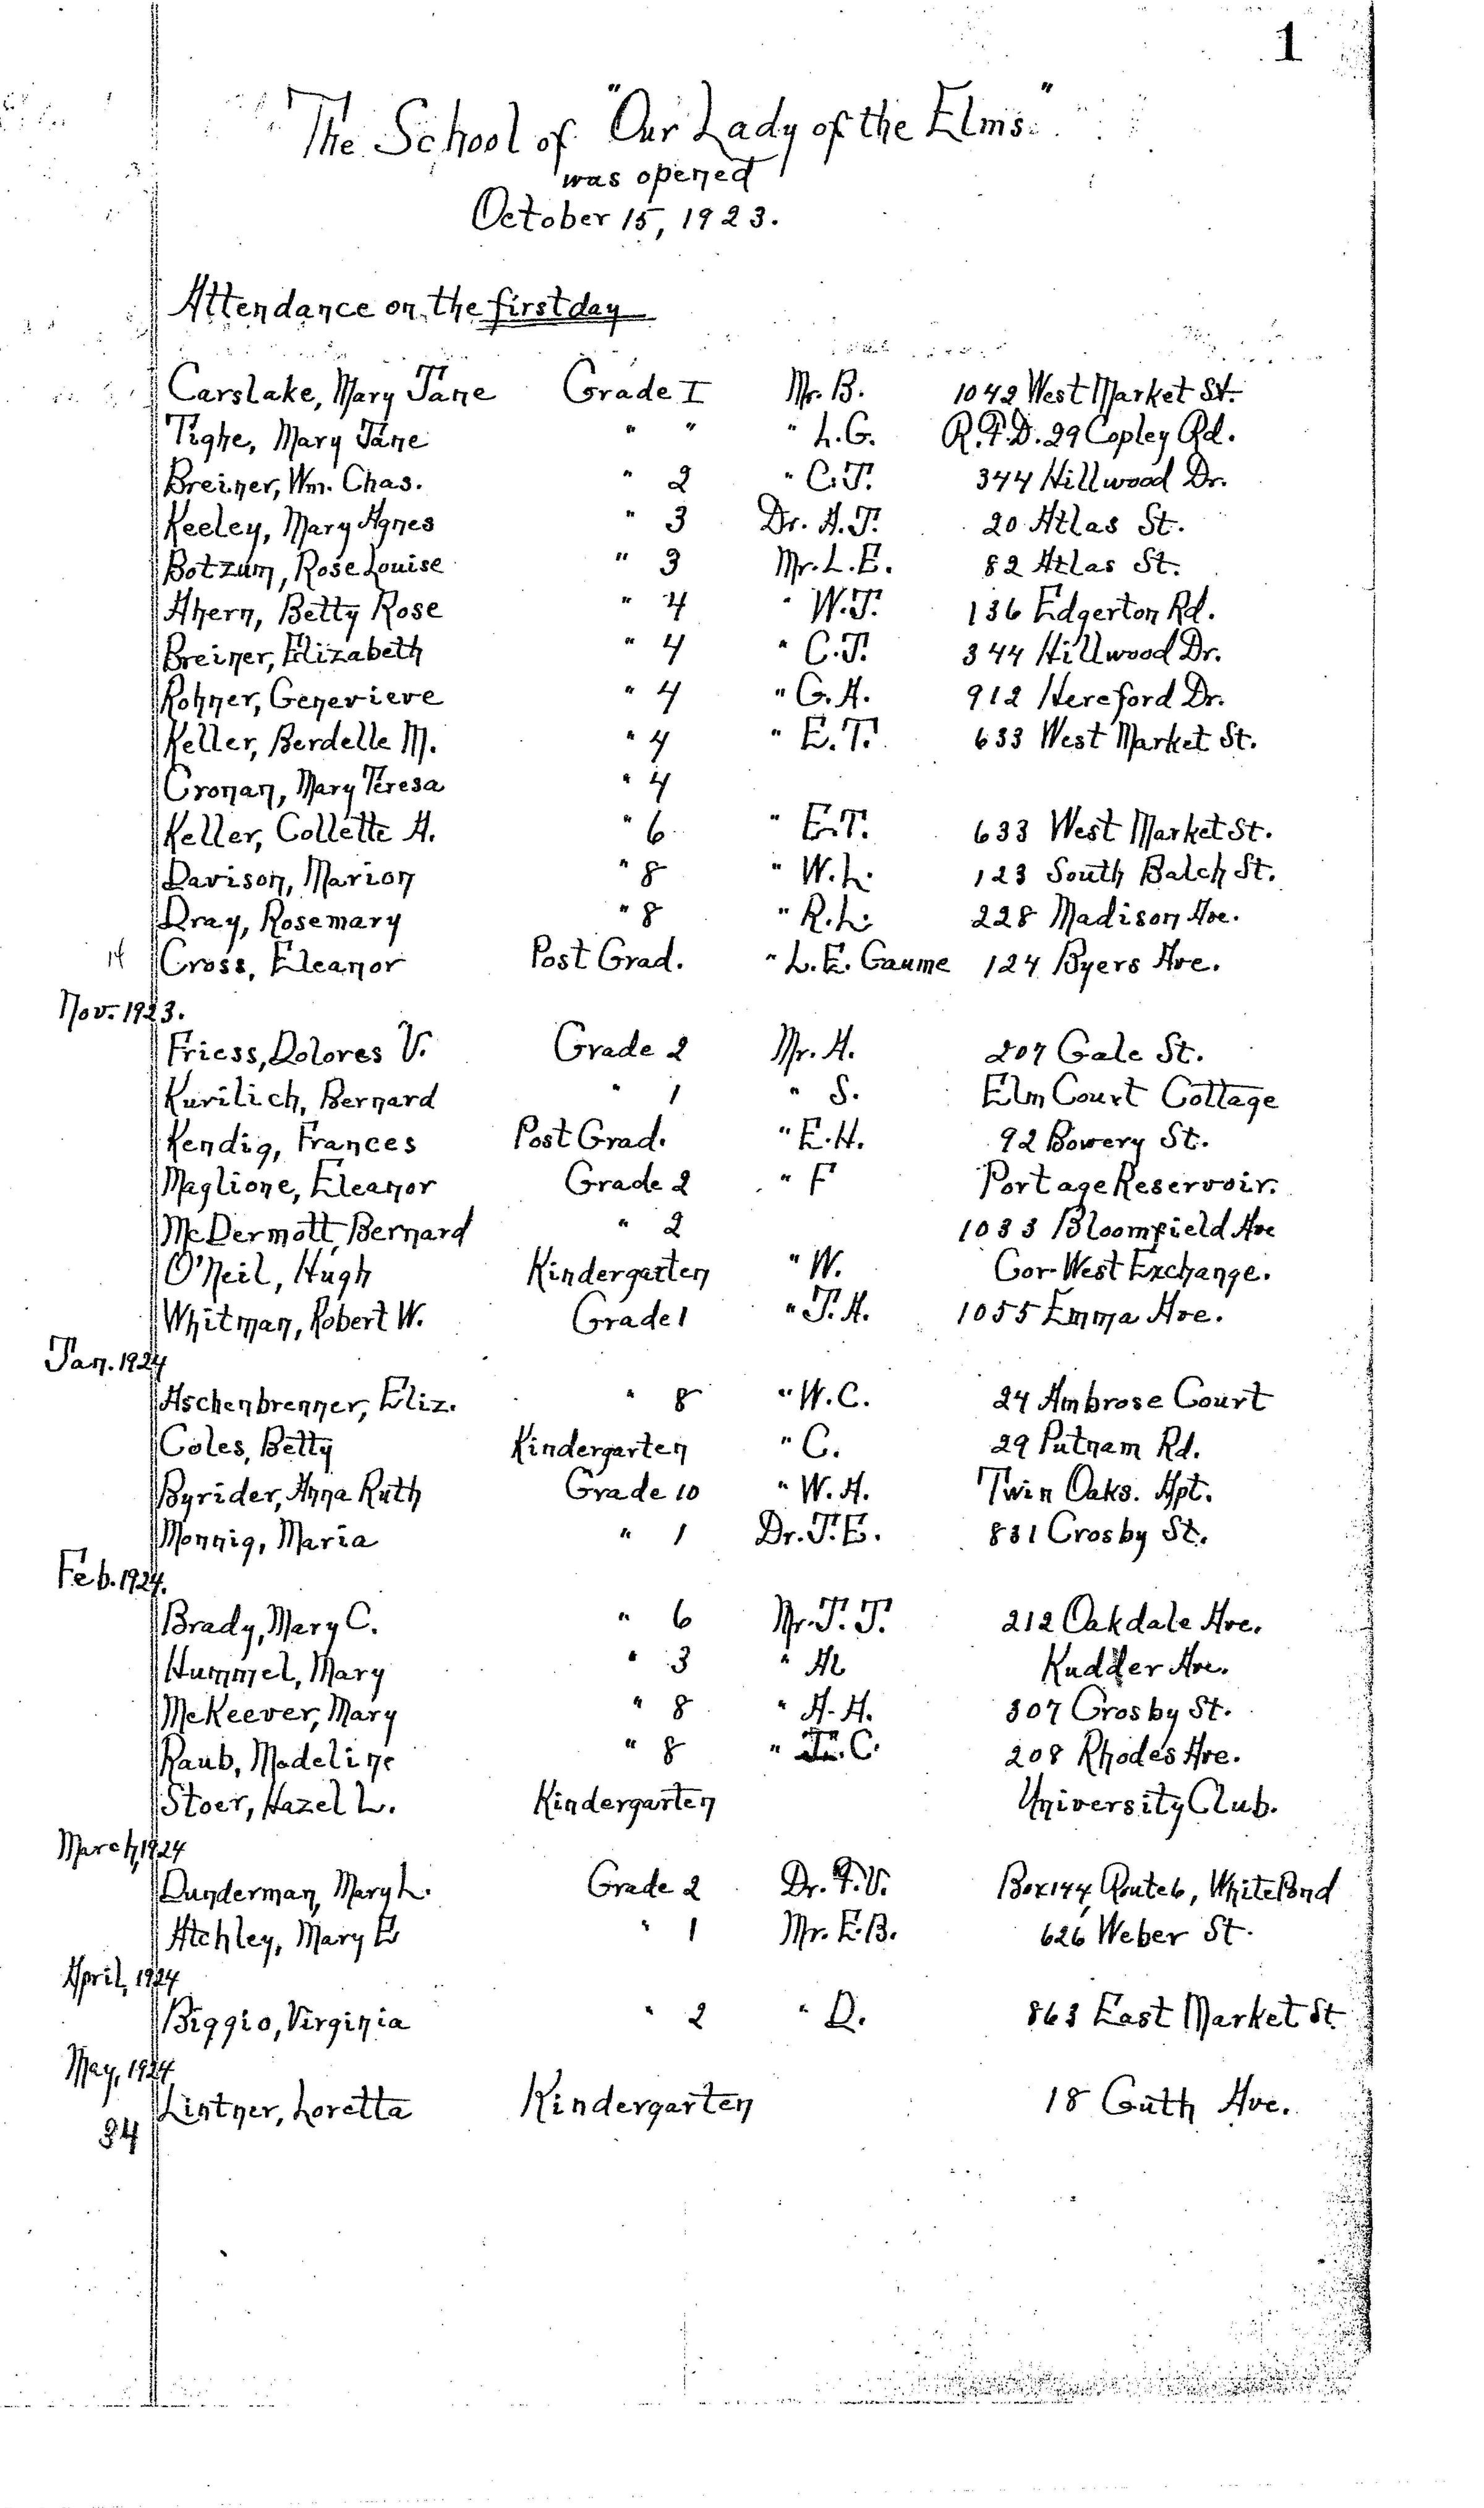 1
The School of "Our Lady of the Elms."
was opened
October 15, 1923.
Attendance on the first day
Carslake, Mary Jane Grade I Mr. B. 1042 West Market St.
Tighe, Mary Jane " " " L.G. R.F.D. 29 Copley Rd.
Breiner, Wm. Chas. " 2 " C.J. 344 Hillwood Dr.
Keeley, Mary Agnes " 3 Dr. A.J. 20 Atlas St.
Botzum, Rose Louise " 3 Mr. L.E. 82 Atlas St.
Ahern, Betty Rose " 4 " W.J. 136 Edgerton Rd.
Breiner, Elizabeth " 4 " C.J. 344 Hillwood Dr.
Rohner, Genevieve " 4 " G.A. 912 Hereford Dr.
Keller, Berdelle M. " 4 " E.T. 633 West Market St.
Cronan, Mary Teresa " 4
Keller, Collette A. " 6 " E.T. 633 West Market St.
Davison, Marion " 8 " W.L. 123 South Balch St.
Dray, Rosemary " 8 " R.L. 228 Madison Ave.
14 Cross, Eleanor Post Grad. " L.E. Gaume 124 Byers Ave.
Nov. 1923.
Friess, Dolores V. Grade 2 Mr. A. 207 Gale St.
Kurilich, Bernard " 1 " S. Elm Court Cottage
Kendig, Frances Post Grad. " E.H. 92 Bowery St.
Maglione, Eleanor Grade 2 " F Portage Reservoir.
McDermott, Bernard " 2 1033 Bloomfield Ave
O'Neil, Hugh Kindergarten " W. Cor. West Exchange.
Whitman, Robert W. Grade 1 " J.A. 1055 Emma Ave.
Jan. 1924
Aschenbrenner, Eliz. " 8 " W.C. 24 Ambrose Court
Coles, Betty Kindergarten " C. 29 Putnam Rd.
Byrider, Anna Ruth Grade 10 " W.A. Twin Oaks. Apt.
Monnig, Maria " 1 Dr. J.E. 831 Crosby St.
Feb. 1924.
Brady, Mary C. " 6 Mr. J.J. 212 Oakdale Ave.
Hummel, Mary " 3 " Al Kudder Ave.
McKeever, Mary " 8 " A.H. 307 Crosby St.
Raub, Madeline " 8 " C. 208 Rhodes Ave.
Stoer, Hazel L. Kindergarten University Club.
March, 1924
Dunderman, Mary L. Grade 2 Dr. F.V. Box 144, Route 6, White Pond
Atchley, Mary E " 1 Mr. E.B. 626 Weber St.
April, 1924
Biggio, Virginia " 2 " D. 863 East Market St.
May, 1924
Lintner, Loretta Kindergarten 18 Guth Ave.
34